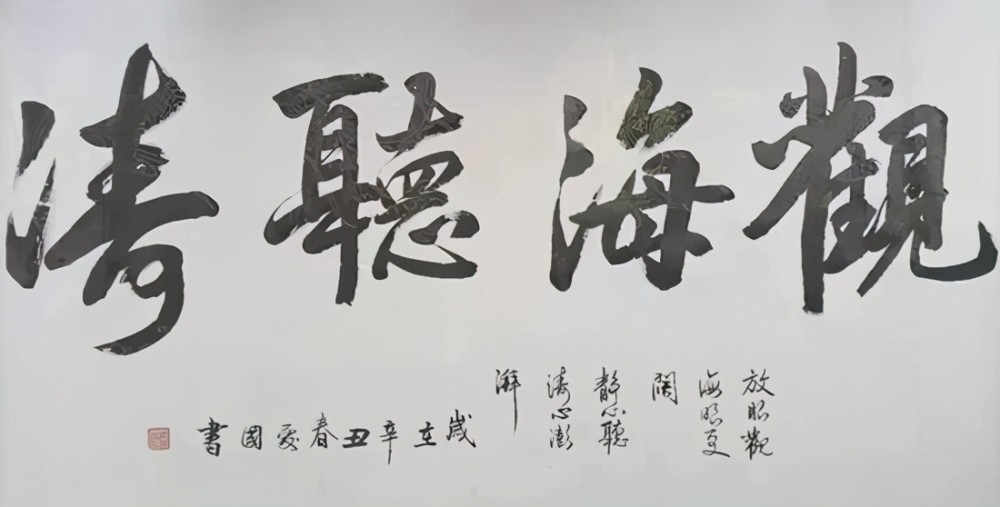 觀海聽濤
放眼觀
海眼更
闊
靜心聽
濤心澎
湃
歲在辛丑春愛國書